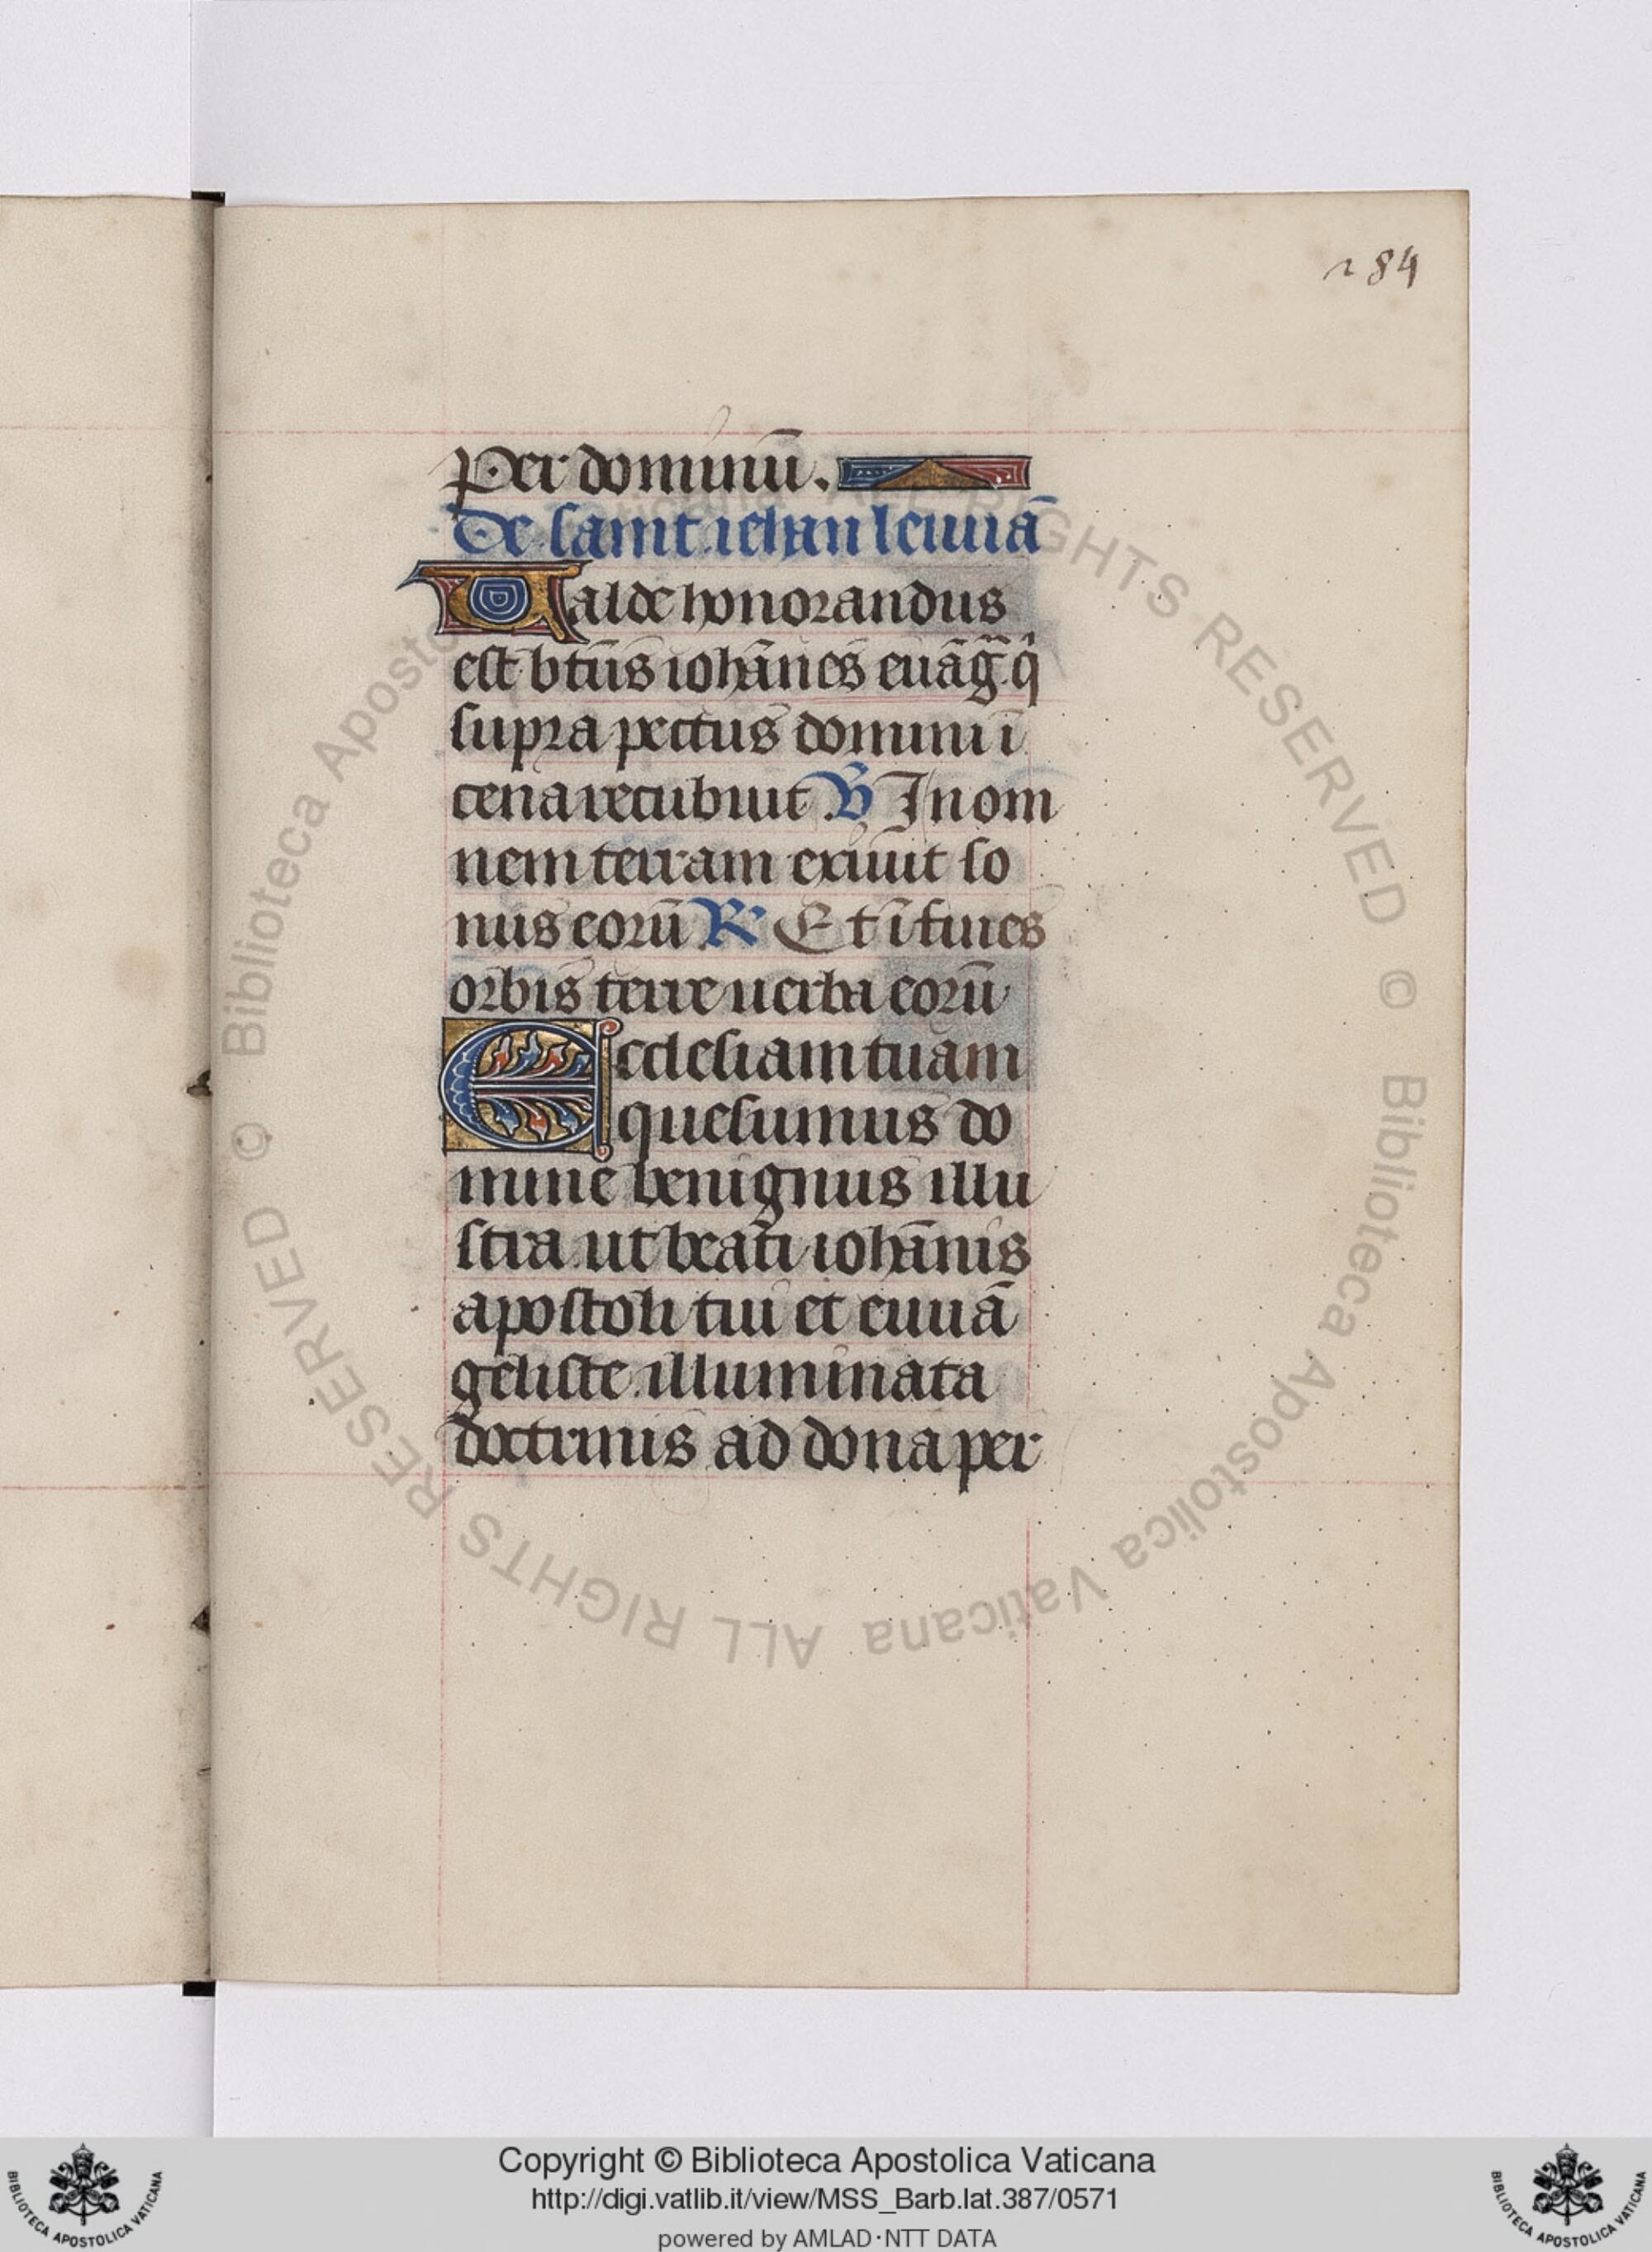 284
Per dominū.
De saint iehan leuuā
Ualde honorandus
est btūs iohānes euāg̃. q̇
supra pectus domini ī
cena recubuit ℣ In om
nem terram exiuit so
nus eorū ℟ Et ī fines
orbis terre uerba eorū
Ecclesiam tuam
quesumus do
mine benignus illu
stra ut beati iohānis
apostoli tui et euuā
geliste illuminata
doctrinis ad dona per
© Biblioteca Apostolica Vaticana ALL RIGHTS RESERVED © Biblioteca Apostolica Vaticana ALL RIGHTS RESERVED
Copyright © Biblioteca Apostolica Vaticana
http://digi.vatlib.it/view/MSS_Barb.lat.387/0571
powered by AMLAD·NTT DATA
BIBLIOTECA APOSTOLICA VATICANA
BIBLIOTECA APOSTOLICA VATICANA